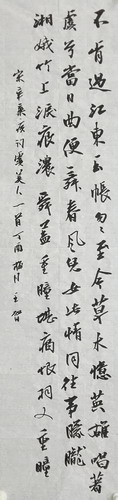 不肯过江东玉帐匆匆至今草木忆英雄唱著
虞兮当日曲便舞春风儿女此情同往事朦胧
湘娥竹上泪痕浓舜盖重瞳堪痛恨羽又重瞳
宋辛弃疾词虞美人一首丁酉